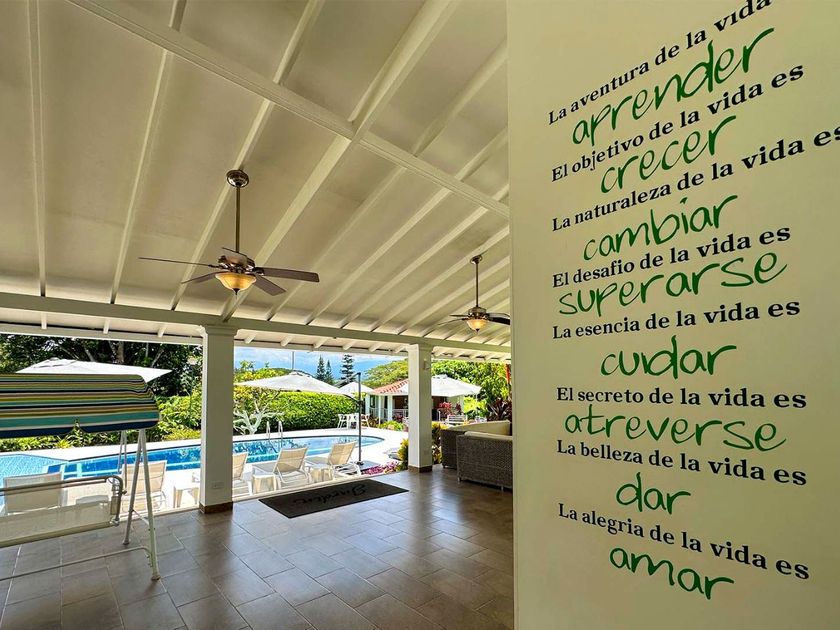 La aventura de la vida
aprender
El objetivo de la vida es
crecer
La naturaleza de la vida es
cambiar
El desafio de la vida es
superarse
La esencia de la vida es
cuidar
El secreto de la vida es
atreverse
La belleza de la vida es
dar
La alegria de la vida es
amar